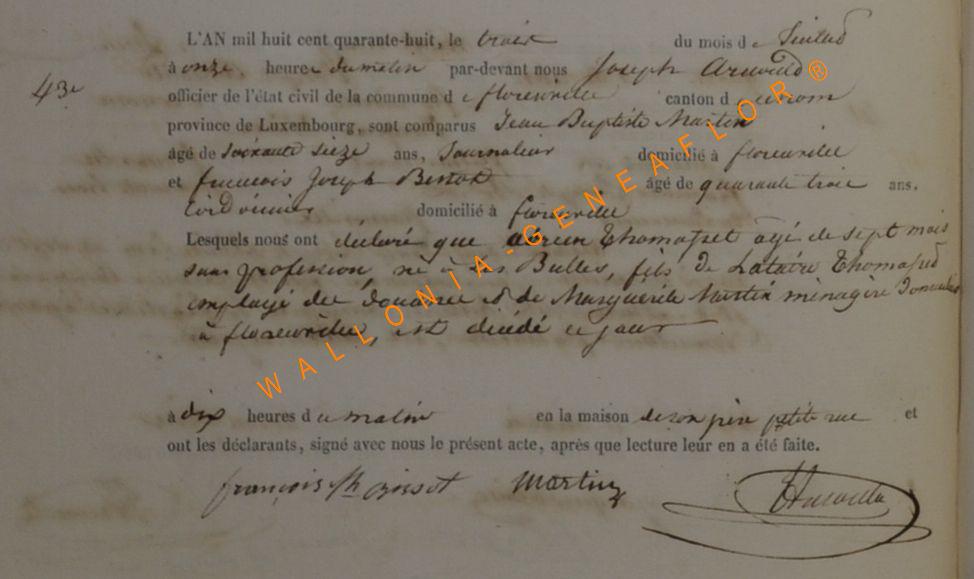 L'AN mil huit cent quarante-huit, le trois du mois de Juillet
43e
à onze heures du matin par-devant nous Joseph Arnould
officier de l'état civil de la commune de florenville canton d
province de Luxembourg, sont comparus Jean Baptiste Martin
âgé de Soixante Seize ans, Journalier domicilié à florenville
et francois Joseph âgé de quarante trois ans.
Cordonnier domicilié à florenville
Lesquels nous ont déclaré que Thomasset agé de sept mois
sans profession, né à Les Bulles, fils de Thomasset
employé des douanes et de Marguerite Martin ménagère Domiciliés
à florenville, est décédé ce jour
à dix heures du matin en la maison de son père petite rue et
ont les déclarants, signé avec nous le présent acte, après que lecture leur en a été faite.
françois Martin
WALLONIA-GENEAFLOR®